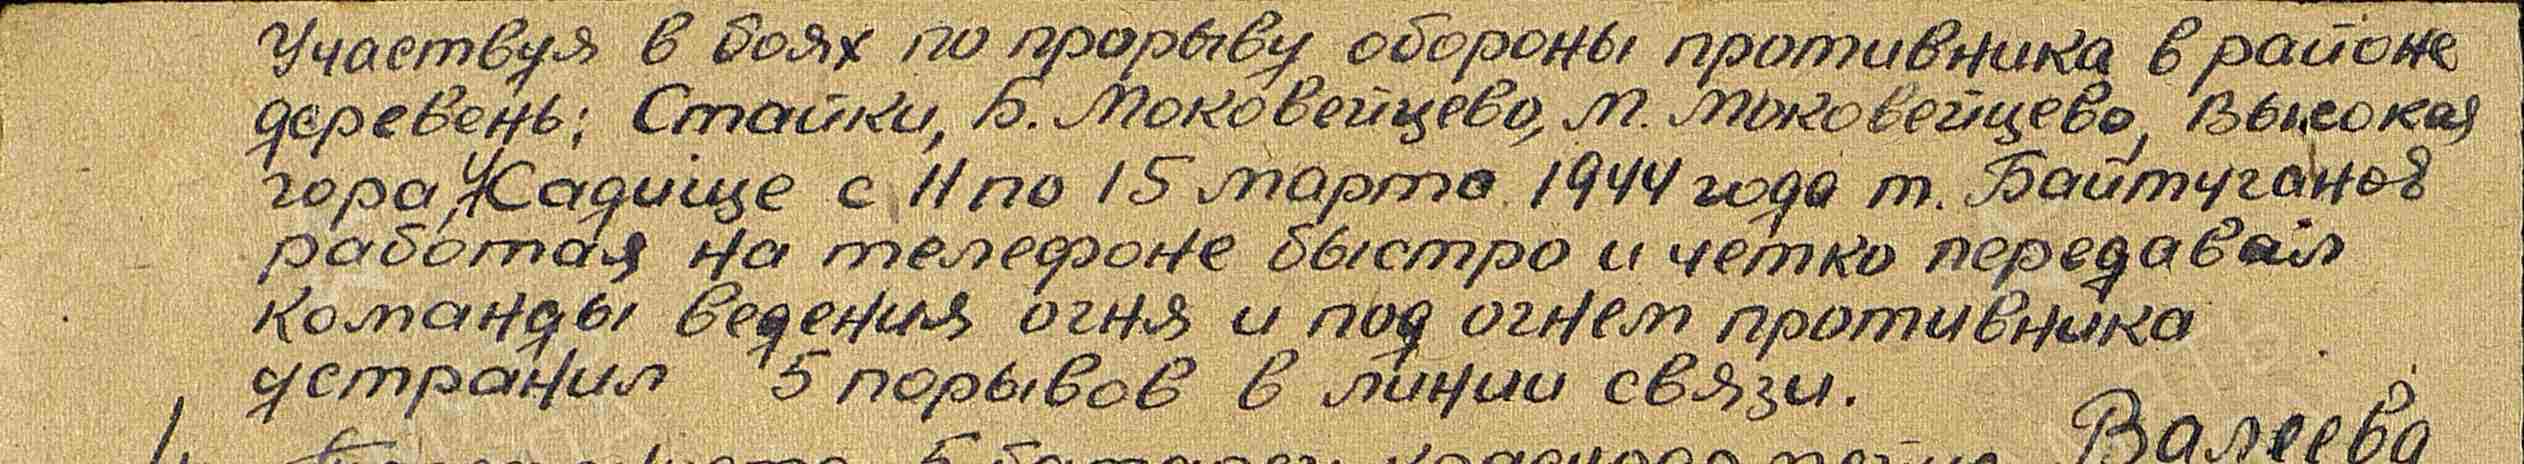 Участвуя в боях по прорыву обороны противника в районе
деревень: Стайки, Б. Моковейцево, М. Моковейцево, Высокая
гора, Жадище с 11 по 15 марта 1944 года т. Байтуганов
работая на телефоне быстро и четко передавал
команды ведения огня и под огнем противника
устранил 5 порывов в линии связи.
Валеева
5 батареи